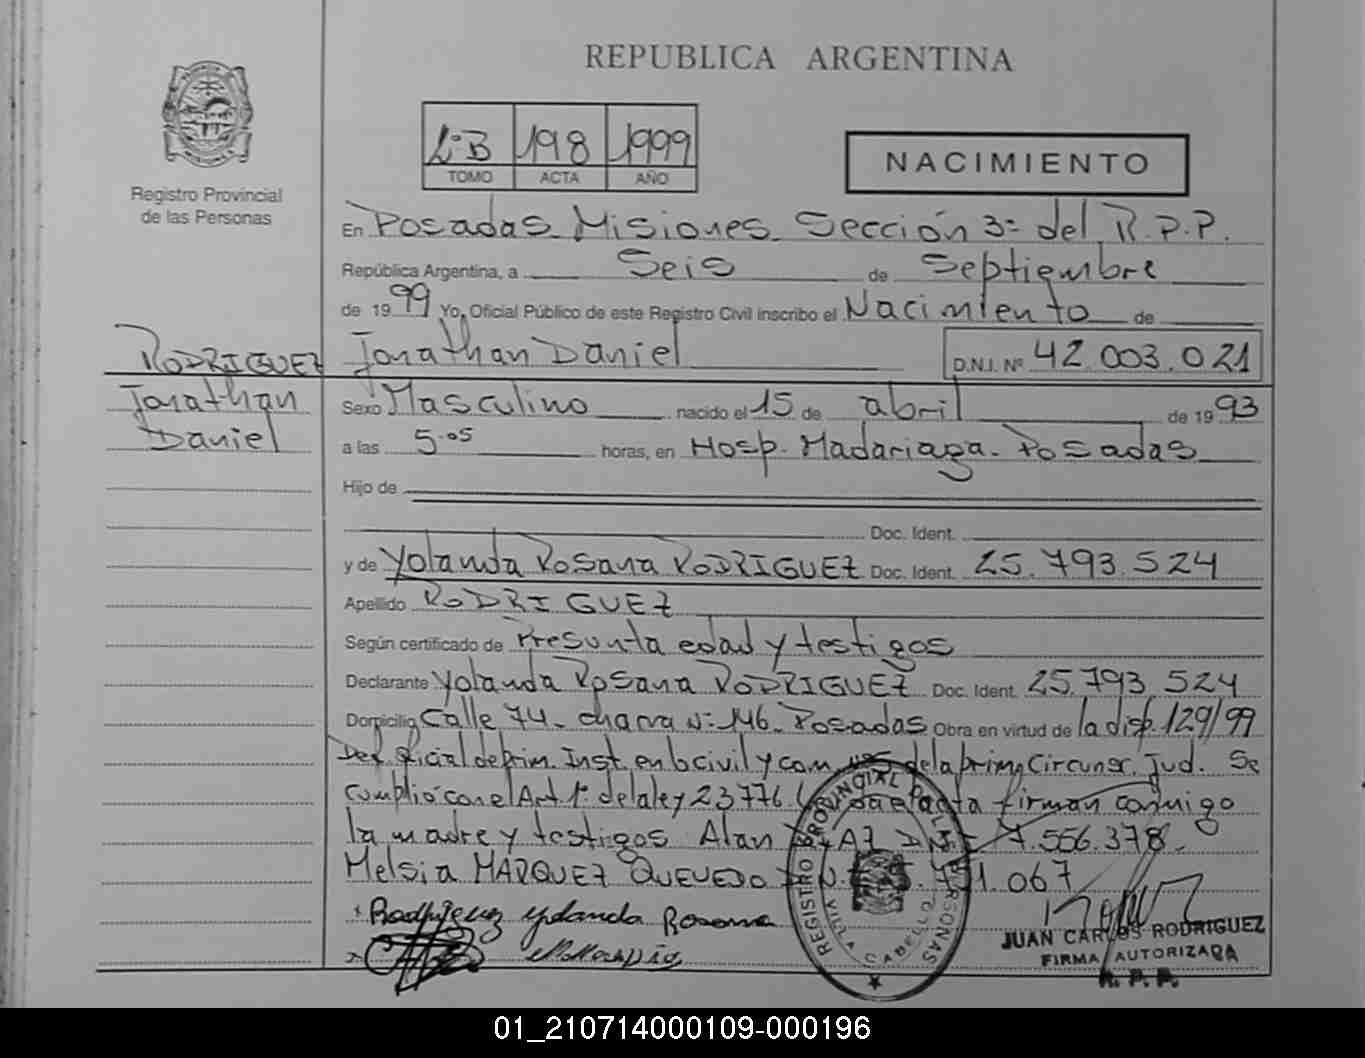 REPUBLICA ARGENTINA
Registro Provincial
de las Personas
TOMO ACTA AÑO
1ºB 198 1999
NACIMIENTO
En Posadas Misiones Sección 3ª del R.P.P.
República Argentina, a Seis de Septiembre
de 1999 Yo, Oficial Público de este Registro Civil inscribo el Nacimiento de
RODRIGUEZ
Jonathan
Daniel
Jonathan Daniel D.N.I. Nº 42.003.021
Sexo Masculino nacido el 15 de abril de 1993
a las 5.05 horas, en Hosp. Madariaga. Posadas
Hijo de
Doc. Ident.
y de Yolanda Rosana RODRIGUEZ Doc. Ident. 25.793.524
Apellido RODRIGUEZ
Según certificado de Presunta edad y testigos
Declarante Yolanda Rosana RODRIGUEZ Doc. Ident. 25.793.524
Domicilio Calle 74 - chacra Nº 146. Posadas Obra en virtud de la disp. 129/99
Def. oficial de prim. Inst. en lo civil y com. de la prim. Circunsc. Jud. Se
cumplió con el Art 1º de la ley 23776 acta firman conmigo
la madre y testigos Alan 7.556.378.
Melsia MARQUEZ QUEVEDO .067
Rodriguez Yolanda Rosana
REGISTRO PROVINCIAL DE LAS PERSONAS
VILLA CABELLO
JUAN CARLOS RODRIGUEZ
FIRMA AUTORIZADA
R. P. P.
01_210714000109-000196